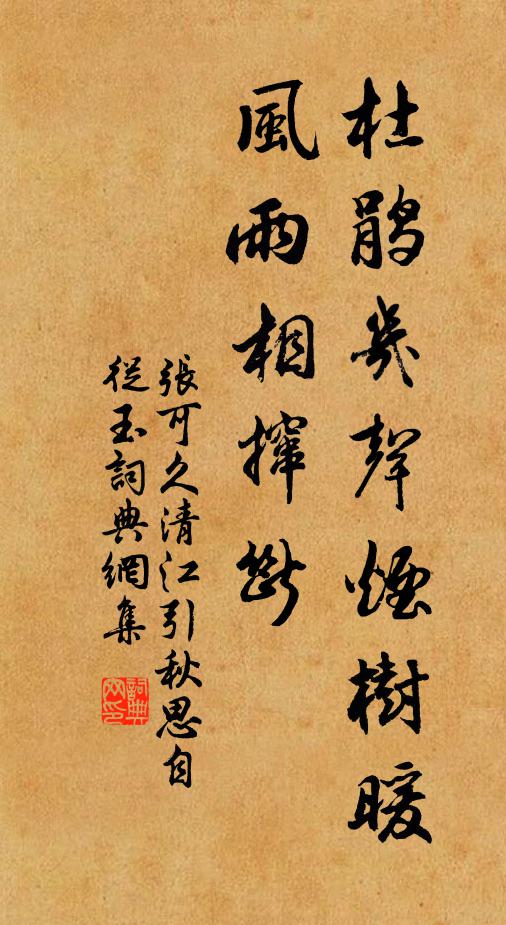 杜鵑幾聲煙樹暖
風雨相撺斷
張可久清江引秋思自
從玉詞典網集
詞典
网印